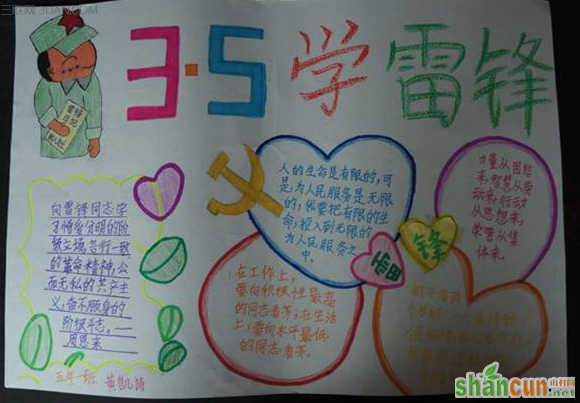 三联网 3LIAN.COM
3·5学雷锋
雷锋
日记
人的生命是有限的,可
是,为人民服务是无限
的,我要把有限的生
命,投入到无限的
为人民服务之
中。
力量从团结
来,智慧从劳
动来,行动
从思想来,
荣誉从集
体来。
向雷锋同志学
习憎爱分明的阶
级立场、言行一致
的革命精神,公
而无私的共产主
义,奋不顾身的
阶级斗志。——
周恩来
雷
锋
在工作上,
要向积极性最高
的同志看齐;在生活
上,要向水平最低
的同志看齐。
五年一班 黄凯诗
shancun
山村网
.net